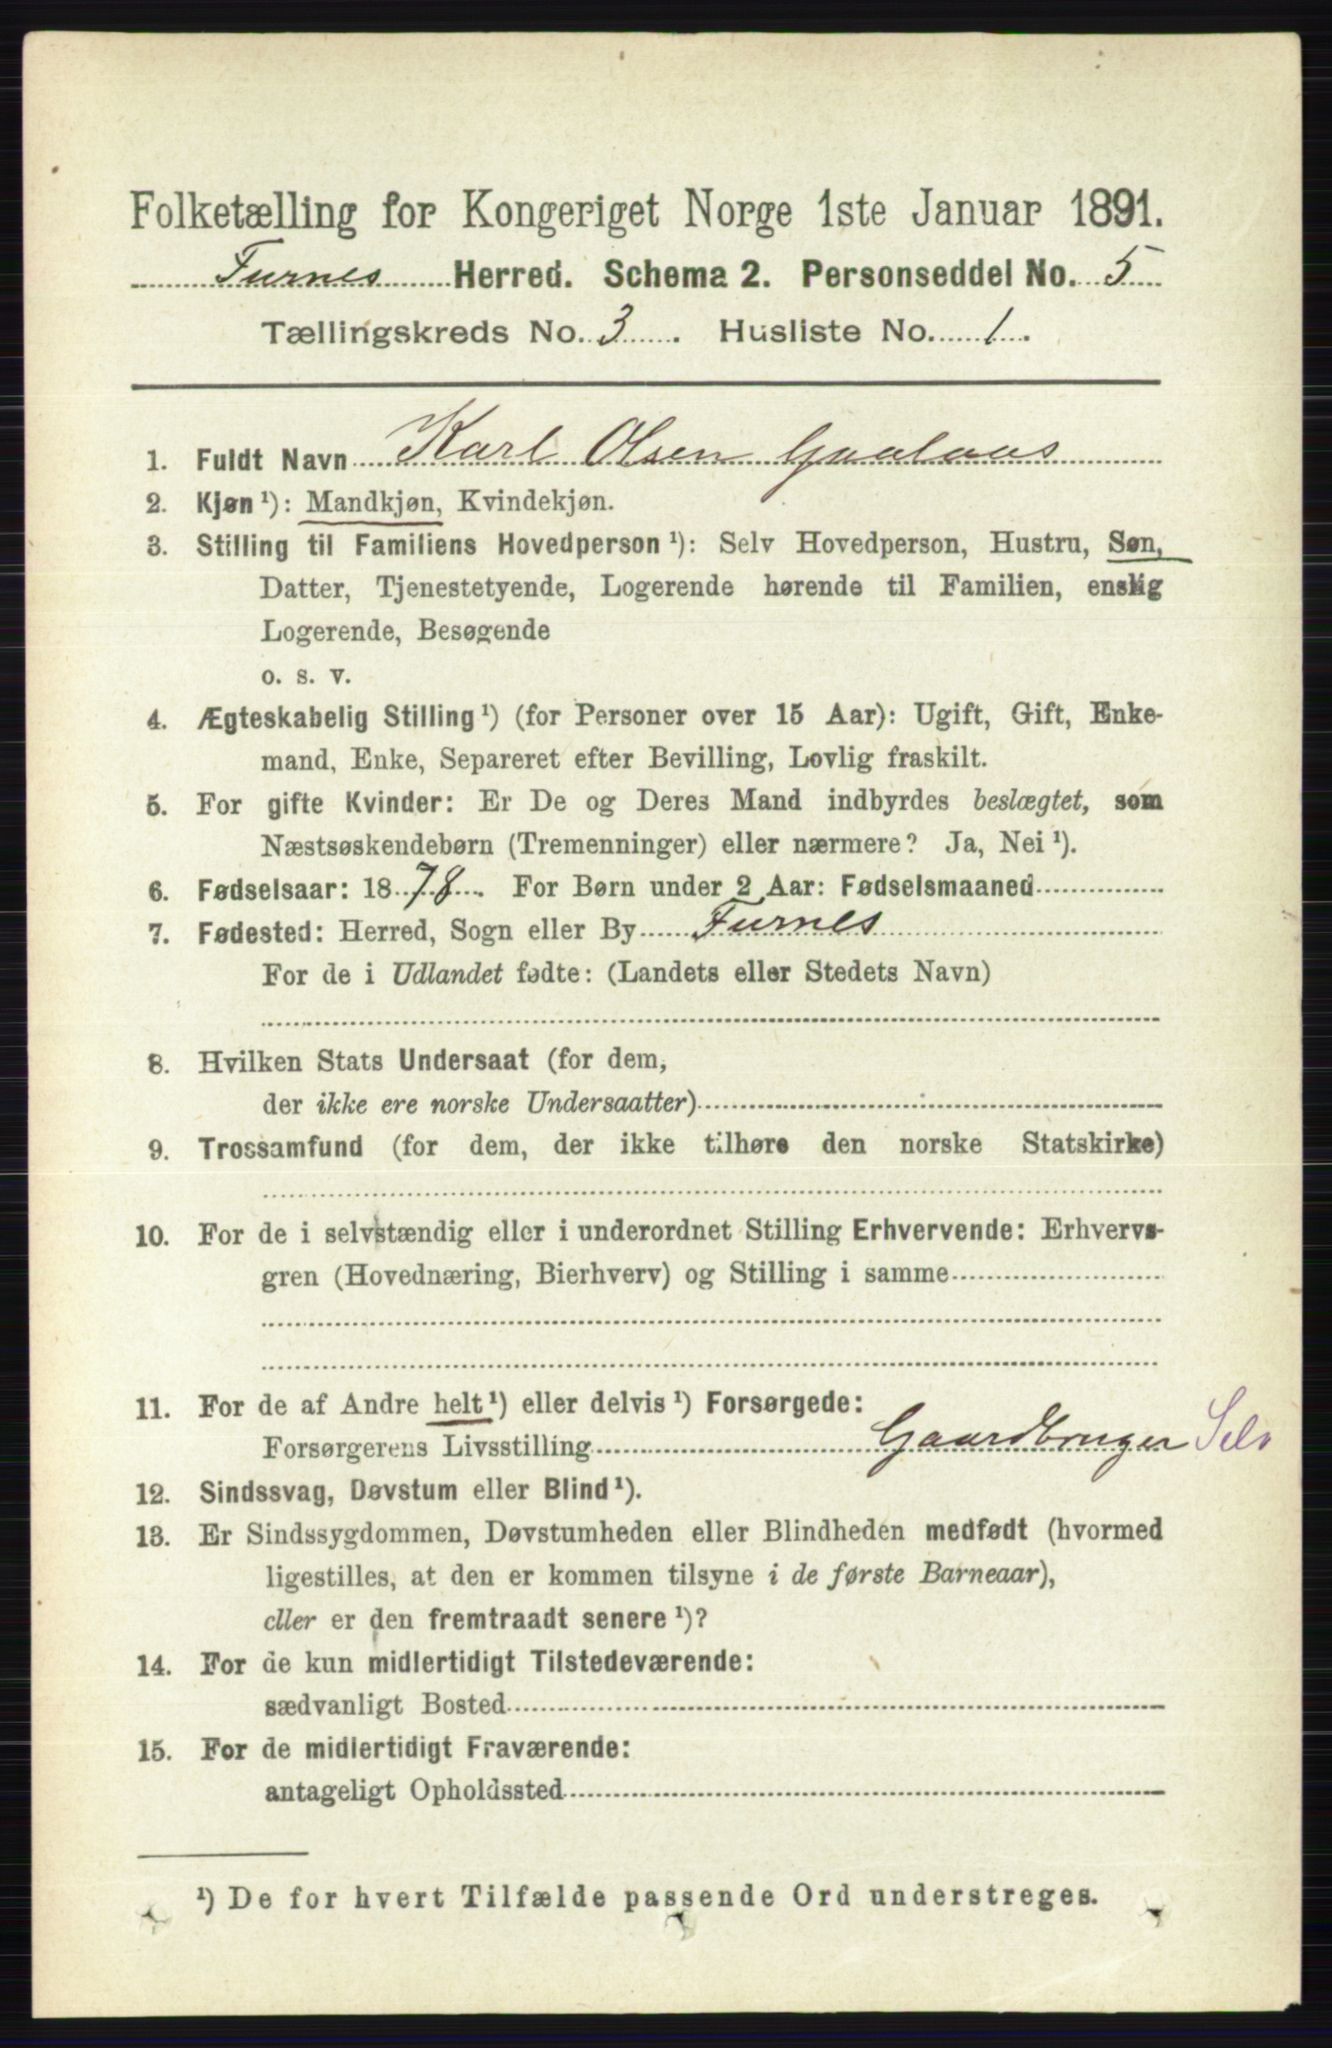 Folketælling for Kongeriget Norge 1ste Januar 1891.
Furnes Herred. Schema 2. Personseddel No. 5
Tællingskreds No. 3. Husliste No. 1.
1. Fuldt Navn Karl Olsen Gaalaas
2. Kjøn ¹): Mandkjøn, Kvindekjøn.
3. Stilling til Familiens Hovedperson ¹): Selv Hovedperson, Hustru, Søn,
Datter, Tjenestetyende, Logerende hørende til Familien, enslig
Logerende, Besøgende
o. s. v.
4. Ægteskabelig Stilling ¹) (for Personer over 15 Aar): Ugift, Gift, Enke-
mand, Enke, Separeret efter Bevilling, Lovlig fraskilt.
5. For gifte Kvinder: Er De og Deres Mand indbyrdes beslægtet, som
Næstsøskendebørn (Tremenninger) eller nærmere? Ja, Nei ¹).
6. Fødselsaar: 1878. For Børn under 2 Aar: Fødselsmaaned
7. Fødested: Herred, Sogn eller By Furnes
For de i Udlandet fødte: (Landets eller Stedets Navn)
8. Hvilken Stats Undersaat (for dem,
der ikke ere norske Undersaatter)
9. Trossamfund (for dem, der ikke tilhøre den norske Statskirke)
10. For de i selvstændig eller i underordnet Stilling Erhvervende: Erhvervs-
gren (Hovednæring, Bierhverv) og Stilling i samme
11. For de af Andre helt ¹) eller delvis ¹) Forsørgede:
Forsørgerens Livsstilling Gaardbruger Selv
12. Sindssvag, Døvstum eller Blind ¹).
13. Er Sindssygdommen, Døvstumheden eller Blindheden medfødt (hvormed
ligestilles, at den er kommen tilsyne i de første Barneaar),
eller er den fremtraadt senere ¹)?
14. For de kun midlertidigt Tilstedeværende:
sædvanligt Bosted
15. For de midlertidigt Fraværende:
antageligt Opholdssted
¹) De for hvert Tilfælde passende Ord understreges.